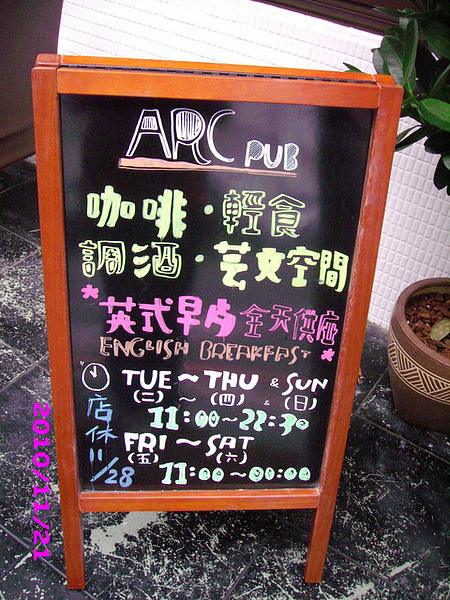 ARC PUB
咖啡・輕食
調酒・芸文空間
*英式早內全天供應*
ENGLISH BREAKFAST
TUE～THU & SUN
(二)～(四) & (日)
11:00～22:30
FRI～SAT
(五) (六)
11:00～00:00
店休11/28
2010/11/21